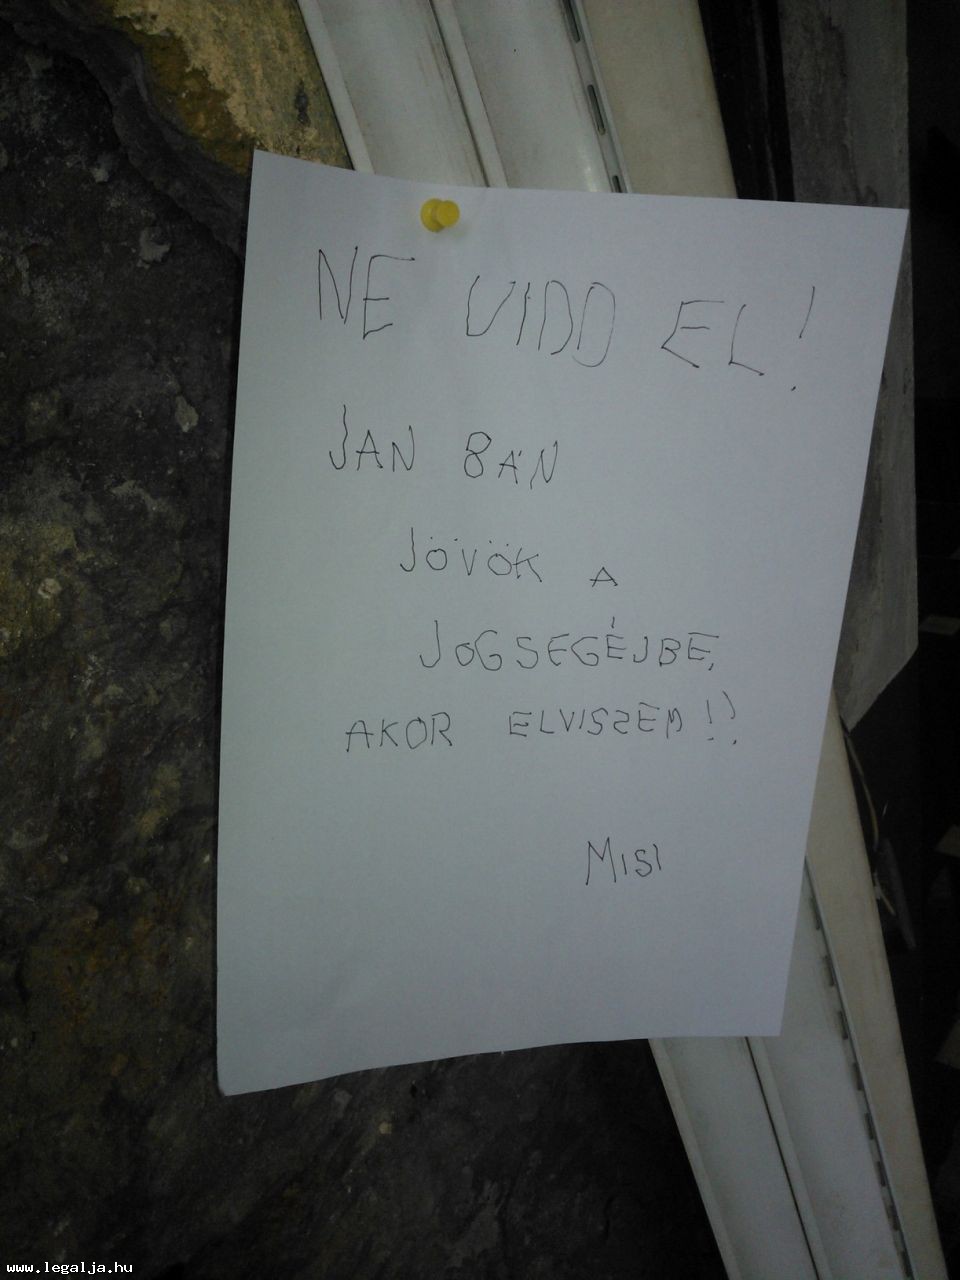 NE VIDD EL!
JAN 8ÁN
JÖVÖK A
JOGSEGÉJBE,
AKOR ELVISZEM!?
MISI
www.legalja.hu